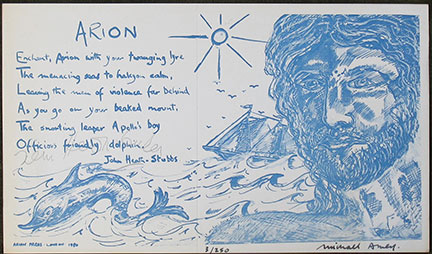 ARION
Enchant, Arion with your twanging lyre
The menacing seas to halcyon calm,
Leaving the men of violence far behind
As you go on your beaked mount,
The snorting leaper Apollo's boy
Officious friendly dolphin.
John Heath-Stubbs
ARION PRESS LONDON 1980
3/250
Michael